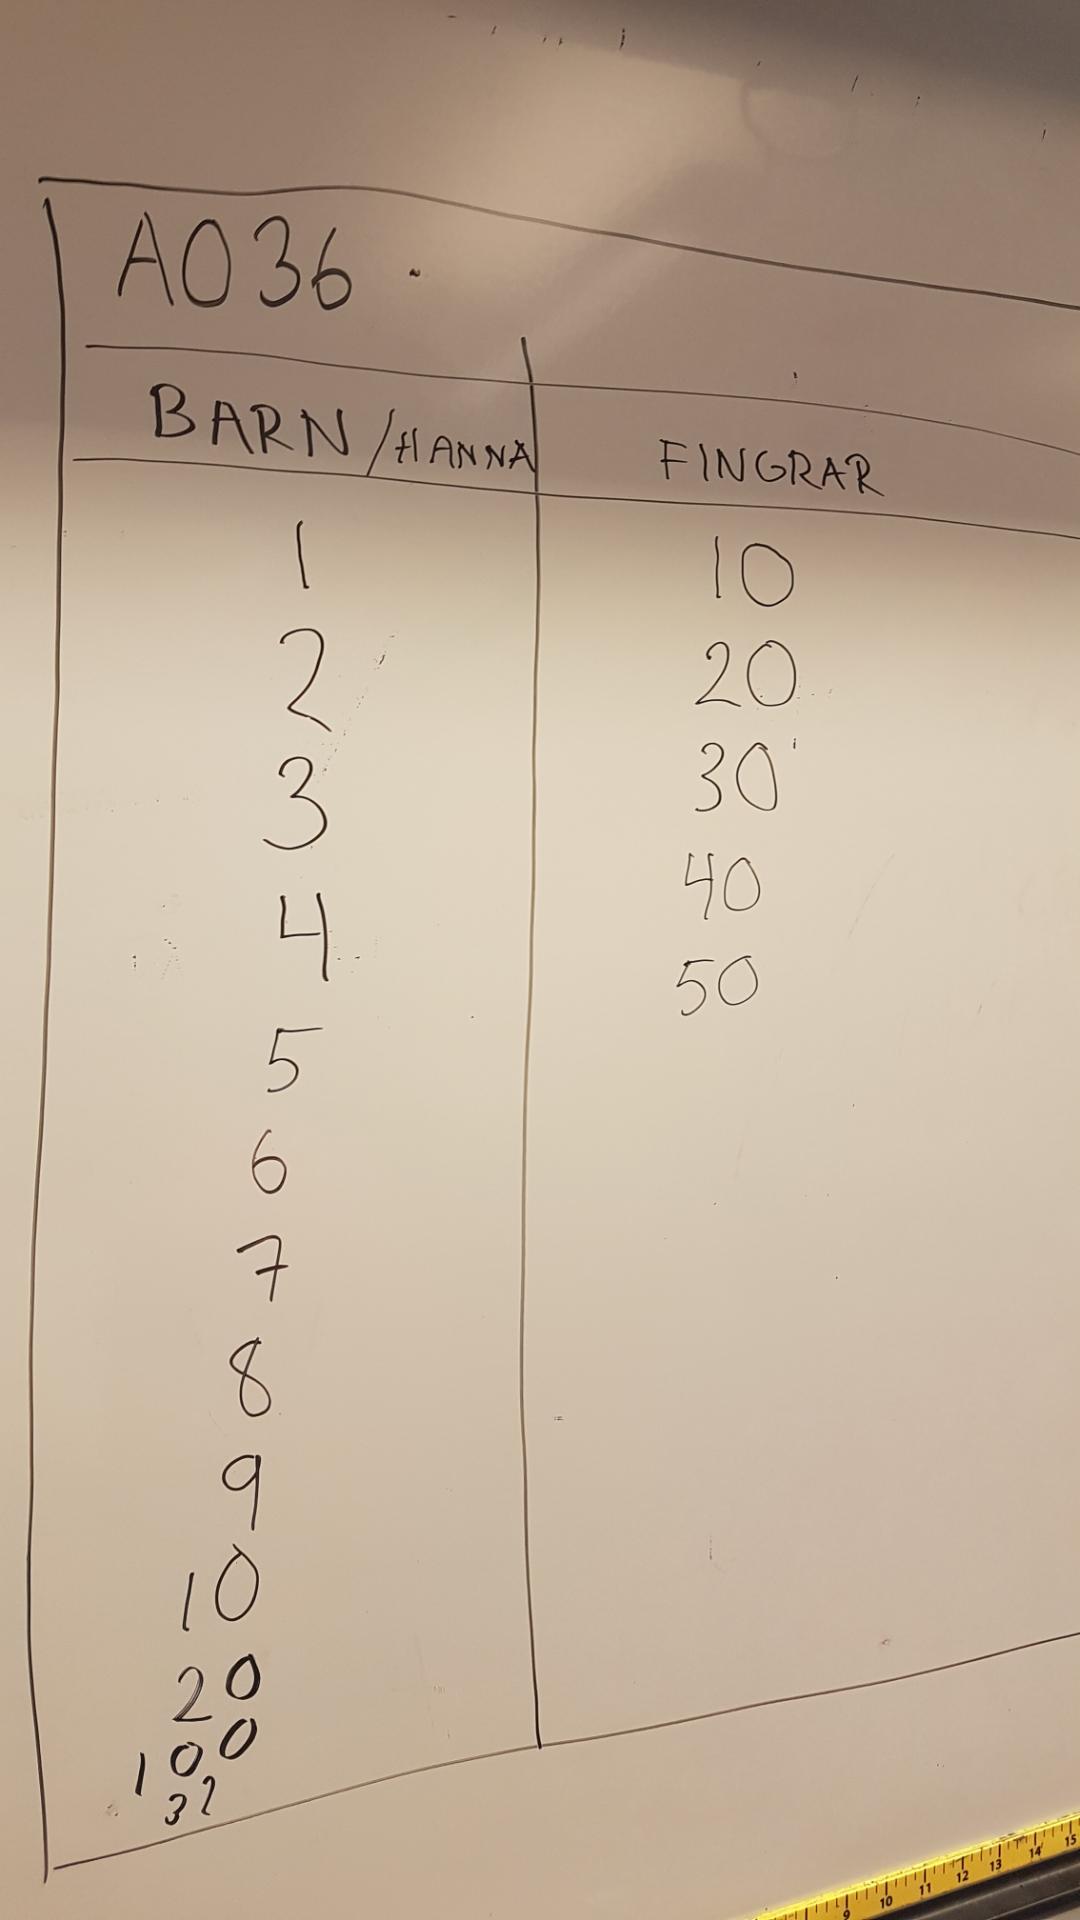 A036
BARN/HANNA FINGRAR
1 10
2 20
3 30
4 40
5 50
6
7
8
9
10
20
100
32
9 10 11 12 13 14 15